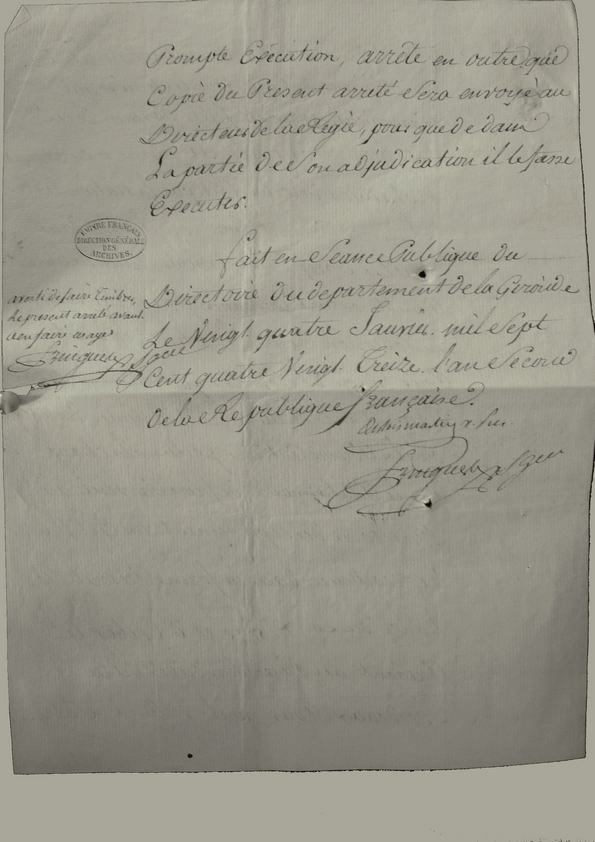 Prompte Exécution, arrête en outre que
Copie du Present arreté Sera envoyé au
Directeur de la Regie, pour que de dans
La partie de Son adjudication il le fasse
Exécuter.
EMPIRE FRANÇAIS
DIRECTION GÉNÉRALE
DES
ARCHIVES.
fait en Séance Publique du
Directoire du departement de la Gironde
Le Vingt quatre Janvier mil Sept
Cent quatre Vingt Treize. l'an Second
de la Republique française.
averti de faire Timbrer
Le present arreté avant
d'en faire usage